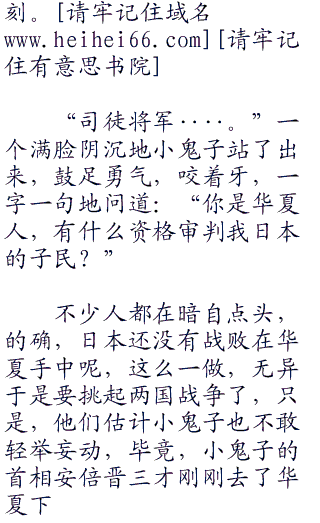 刻。[请牢记住域名
www.heihei66.com][请牢记
住有意思书院]
“司徒将军····。”一
个满脸阴沉地小鬼子站了出
来，鼓足勇气，咬着牙，一
字一句地问道：“你是华夏
人，有什么资格审判我日本
的子民？”
不少人都在暗自点头，
的确，日本还没有战败在华
夏手中呢，这么一做，无异
于是要挑起两国战争了，只
是，他们估计小鬼子也不敢
轻举妄动，毕竟，小鬼子的
首相安倍晋三才刚刚去了华
夏下